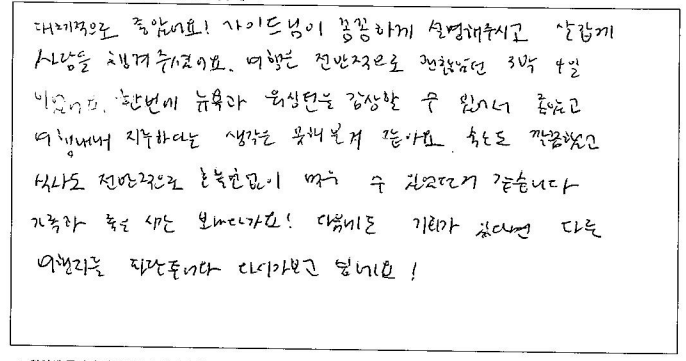 대체적으로 좋았어요! 가이드님이 꼼꼼하게 설명해주시고 살갑게
사람들 챙겨주셨어요. 여행은 전반적으로 괜찮았던 3박 4일
이었어요. 한번에 뉴욕과 워싱턴을 감상할 수 있어서 좋았고
여행내내 지루하다는 생각은 못해본거 같아요. 숙소도 깔끔했고
식사도 전반적으로 호불호없이 먹을 수 있었던거 같습니다
가족과 좋은 시간 보내다가요! 다음에도 기회가 있다면 다른
여행지를 다녀가보고 싶네요!